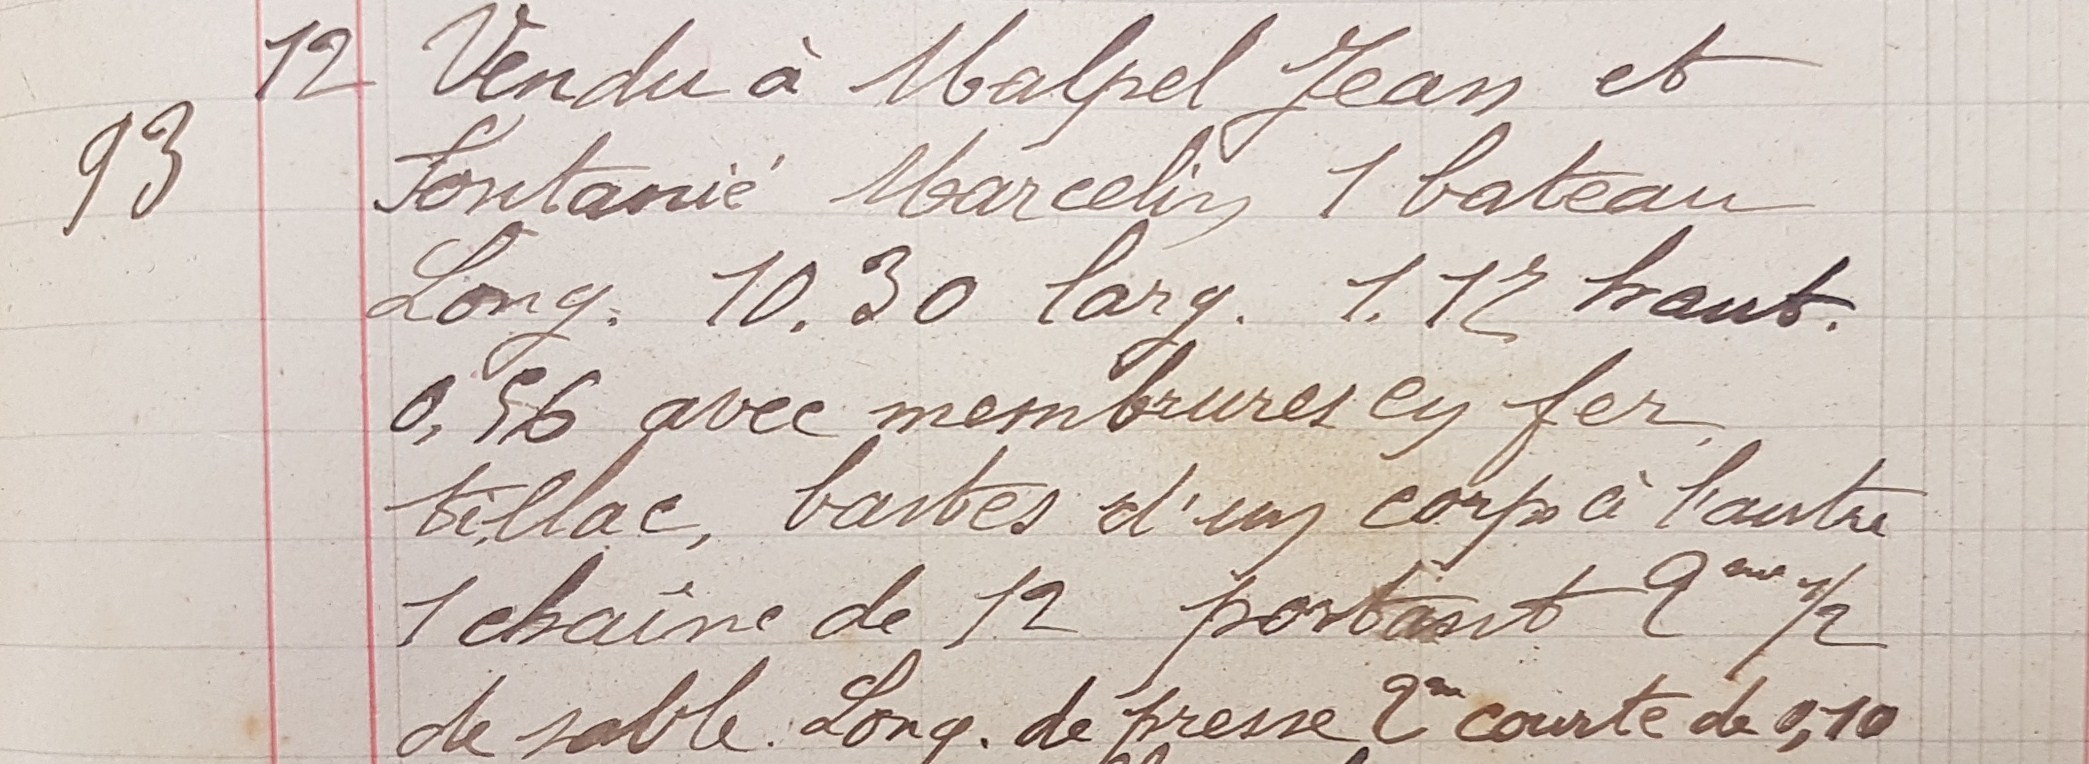 12 Vendu à Malpel Jean et
93 Fontanié Marcelin 1 bateau
Long. 10.30 larg. 1.12 haut.
0,56 avec membrures en fer
tillac, bastes d'un corps à l'autre
1 chaîne de 12 portant 2 me 1/2
de sable. Long. de presse 2m courte de 0,10